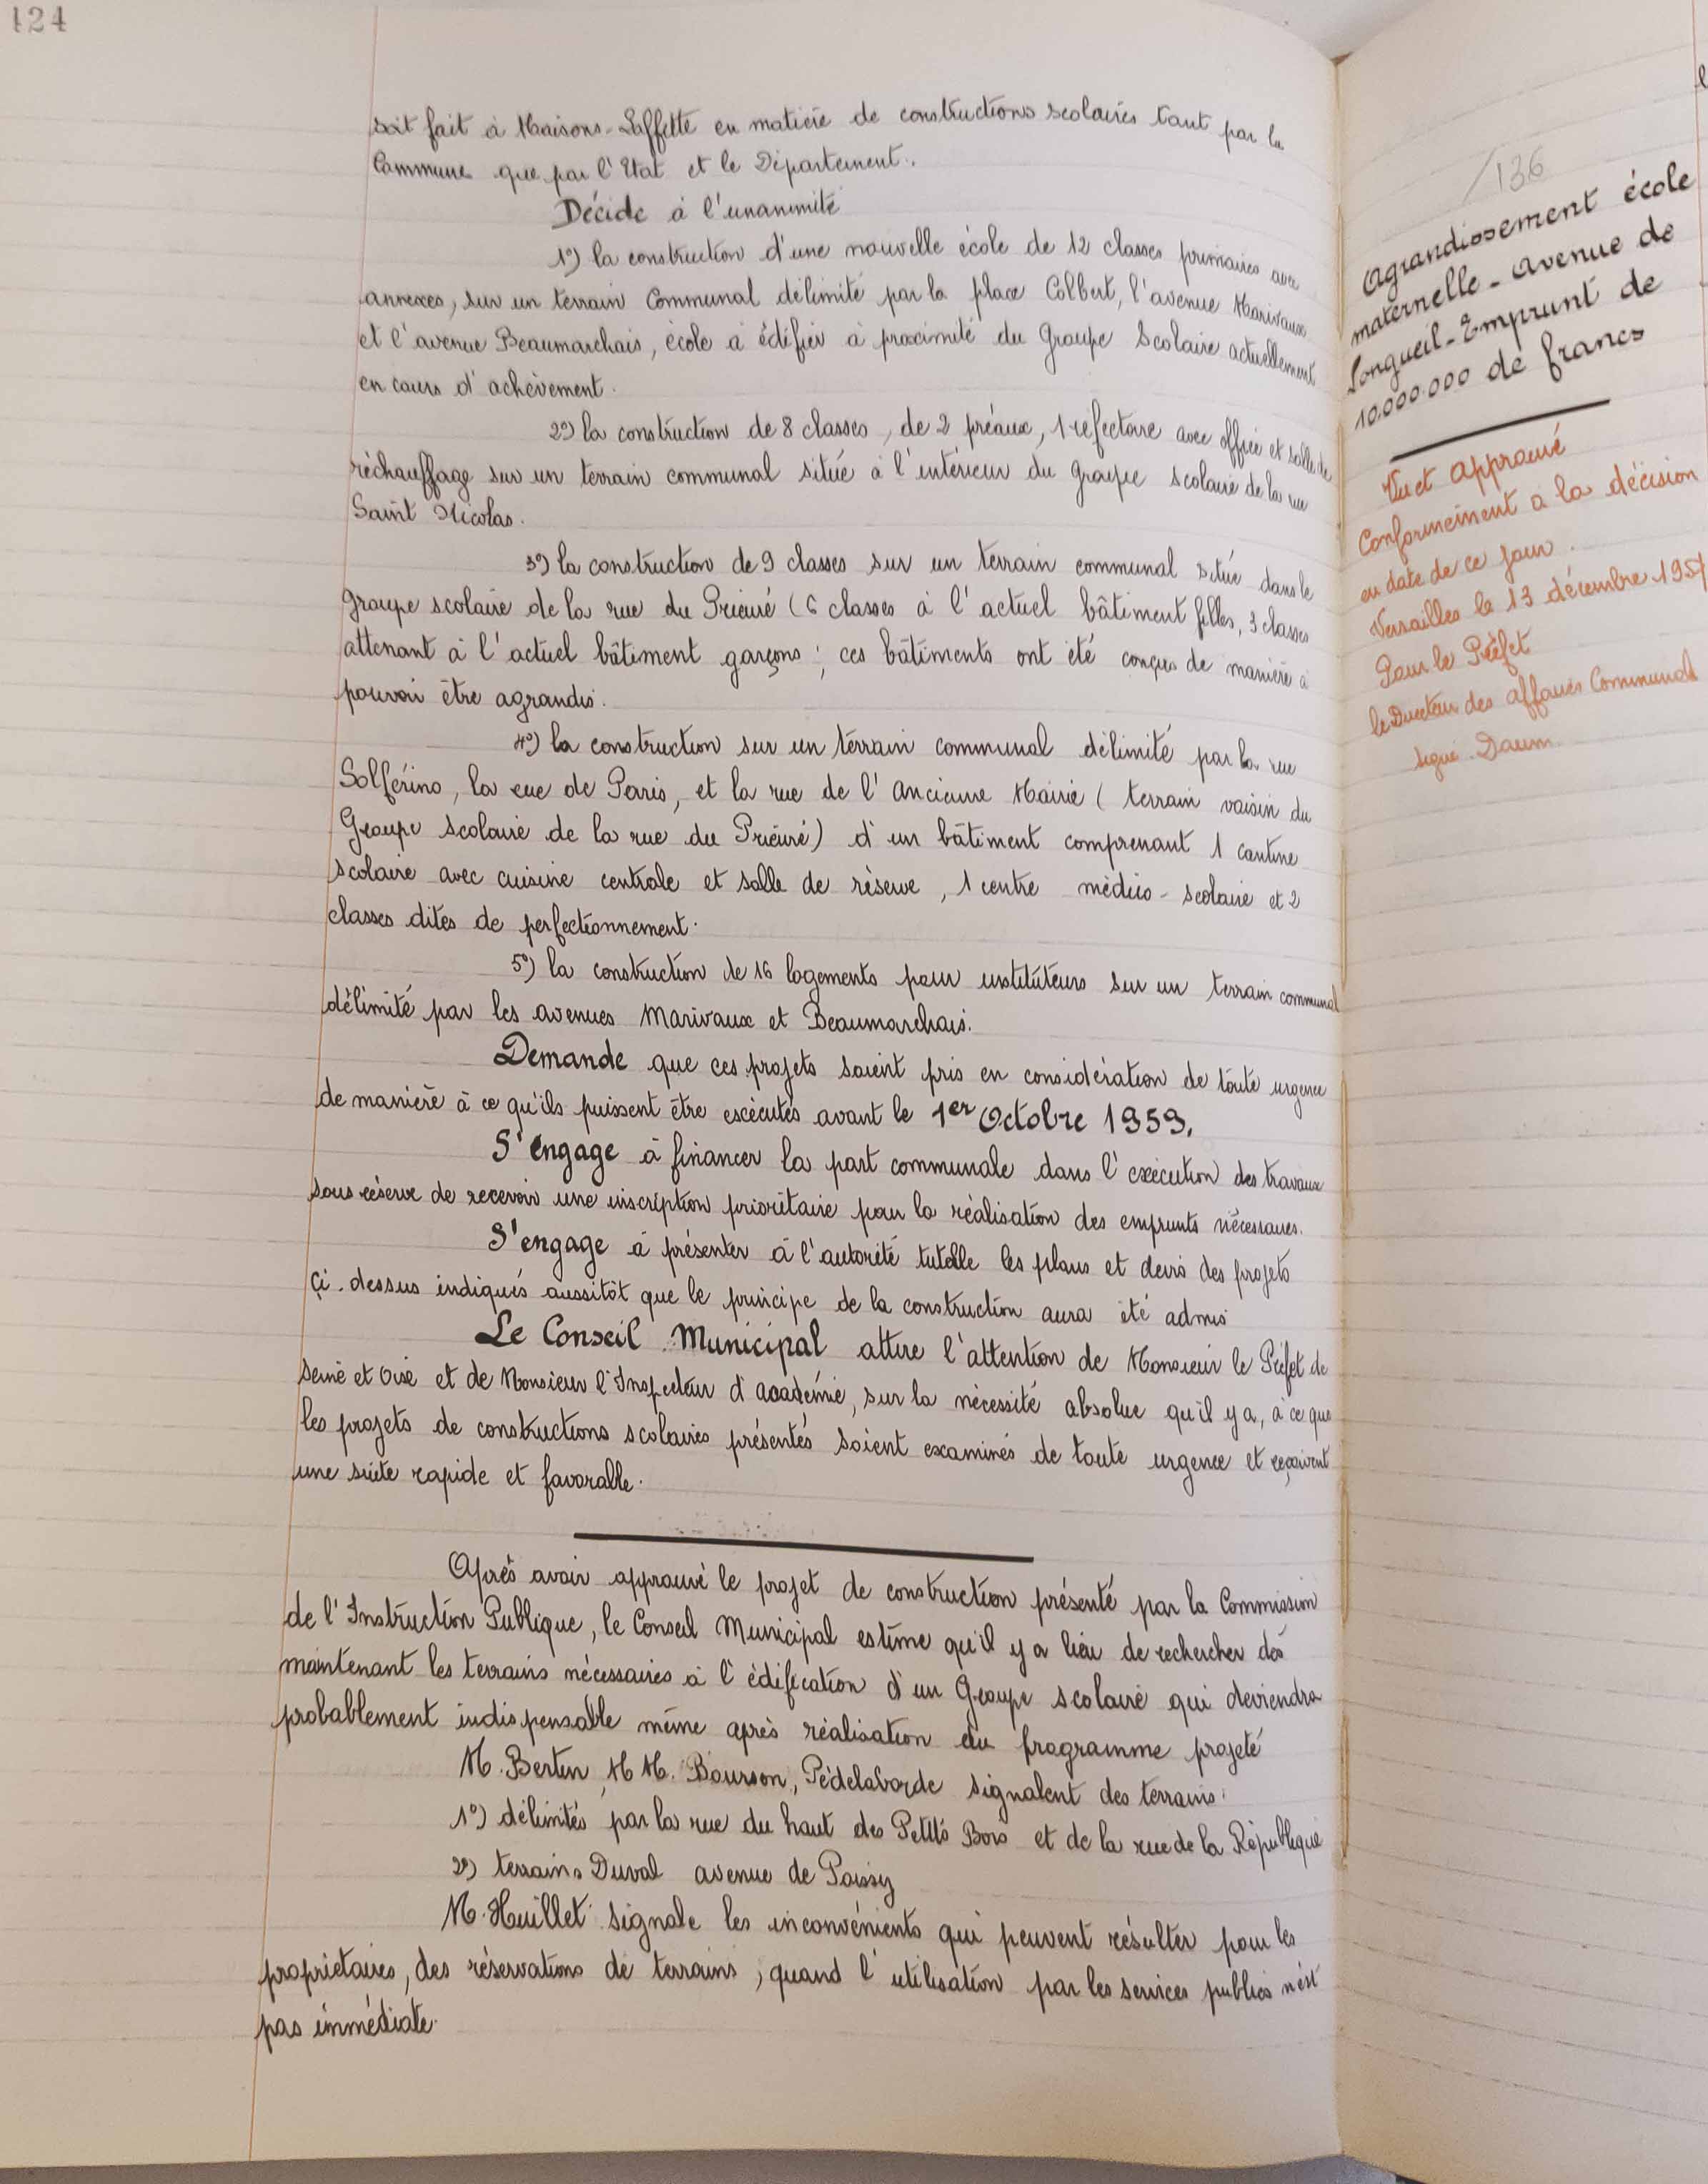 124
soit fait à Maisons-Laffitte en matière de constructions scolaires tant par la
Commune que par l'Etat et le Département.
Décide à l'unanimité
1°) la construction d'une nouvelle école de 12 classes primaires avec
annexes, sur un terrain Communal délimité par la place Colbert, l'avenue Marivaux
et l'avenue Beaumarchais, école à édifier à proximité du Groupe Scolaire actuellement
en cours d'achèvement.
2°) la construction de 8 classes, de 2 préaux, 1 réfectoire avec office et salle de
réchauffage sur un terrain communal située à l'intérieur du groupe scolaire de la rue
Saint Nicolas.
3°) la construction de 9 classes sur un terrain communal située dans le
groupe scolaire de la rue du Prieuré (6 classes à l'actuel bâtiment filles, 3 classes
attenant à l'actuel bâtiment garçons ; ces bâtiments ont été conçus de manière à
pouvoir être agrandis.
4°) la construction sur un terrain communal délimité par la rue
Solférino, la rue de Paris, et la rue de l'Ancienne Mairie (terrain voisin du
Groupe scolaire de la rue du Prieuré) d'un bâtiment comprenant 1 cantine
scolaire avec cuisine centrale et salle de réserve, 1 centre médico-scolaire et 2
classes dites de perfectionnement.
5°) la construction de 16 logements pour instituteurs sur un terrain communal
délimité par les avenues Marivaux et Beaumarchais.
Demande que ces projets soient pris en considération de toute urgence
de manière à ce qu'ils puissent être exécutés avant le 1er Octobre 1959.
S'engage à financer la part communale dans l'exécution des travaux
sous réserve de recevoir une inscription prioritaire pour la réalisation des emprunts nécessaires.
S'engage à présenter à l'autorité tutelle les plans et devis des projets
çi-dessus indiqués aussitôt que le principe de la construction aura été admis
Le Conseil Municipal attire l'attention de Monsieur le Préfet de
Seine et Oise et de Monsieur l'Inspecteur d'académie, sur la nécessité absolue qu'il y a, à ce que
les projets de constructions scolaires présentés soient examinés de toute urgence et reçoivent
une suite rapide et favorable.
Après avoir approuvé le projet de construction présenté par la Commission
de l'Instruction Publique, le Conseil Municipal estime qu'il y a lieu de rechercher dès
maintenant les terrains nécessaires à l'édification d'un Groupe scolaire qui deviendra
probablement indispensable même après réalisation du programme projeté
M. Bertin, M M. Bourson, Pédelaborde signalent des terrains :
1°) délimités par la rue du haut des Petits Bois et de la rue de la République
2°) terrains Duval avenue de Poissy
M. Huillet signale les inconvénients qui peuvent résulter pour les
propriétaires, des réservations de terrains, quand l'utilisation par les services publics n'est
pas immédiate.
/136
Agrandissement école
maternelle - avenue de
Longueil - Emprunt de
10.000.000 de francs
Vu et approuvé
Conformément à la décision
en date de ce jour.
Versailles le 13 décembre 1957
Pour le Préfet
le Directeur des affaires Communales
signé : Daum